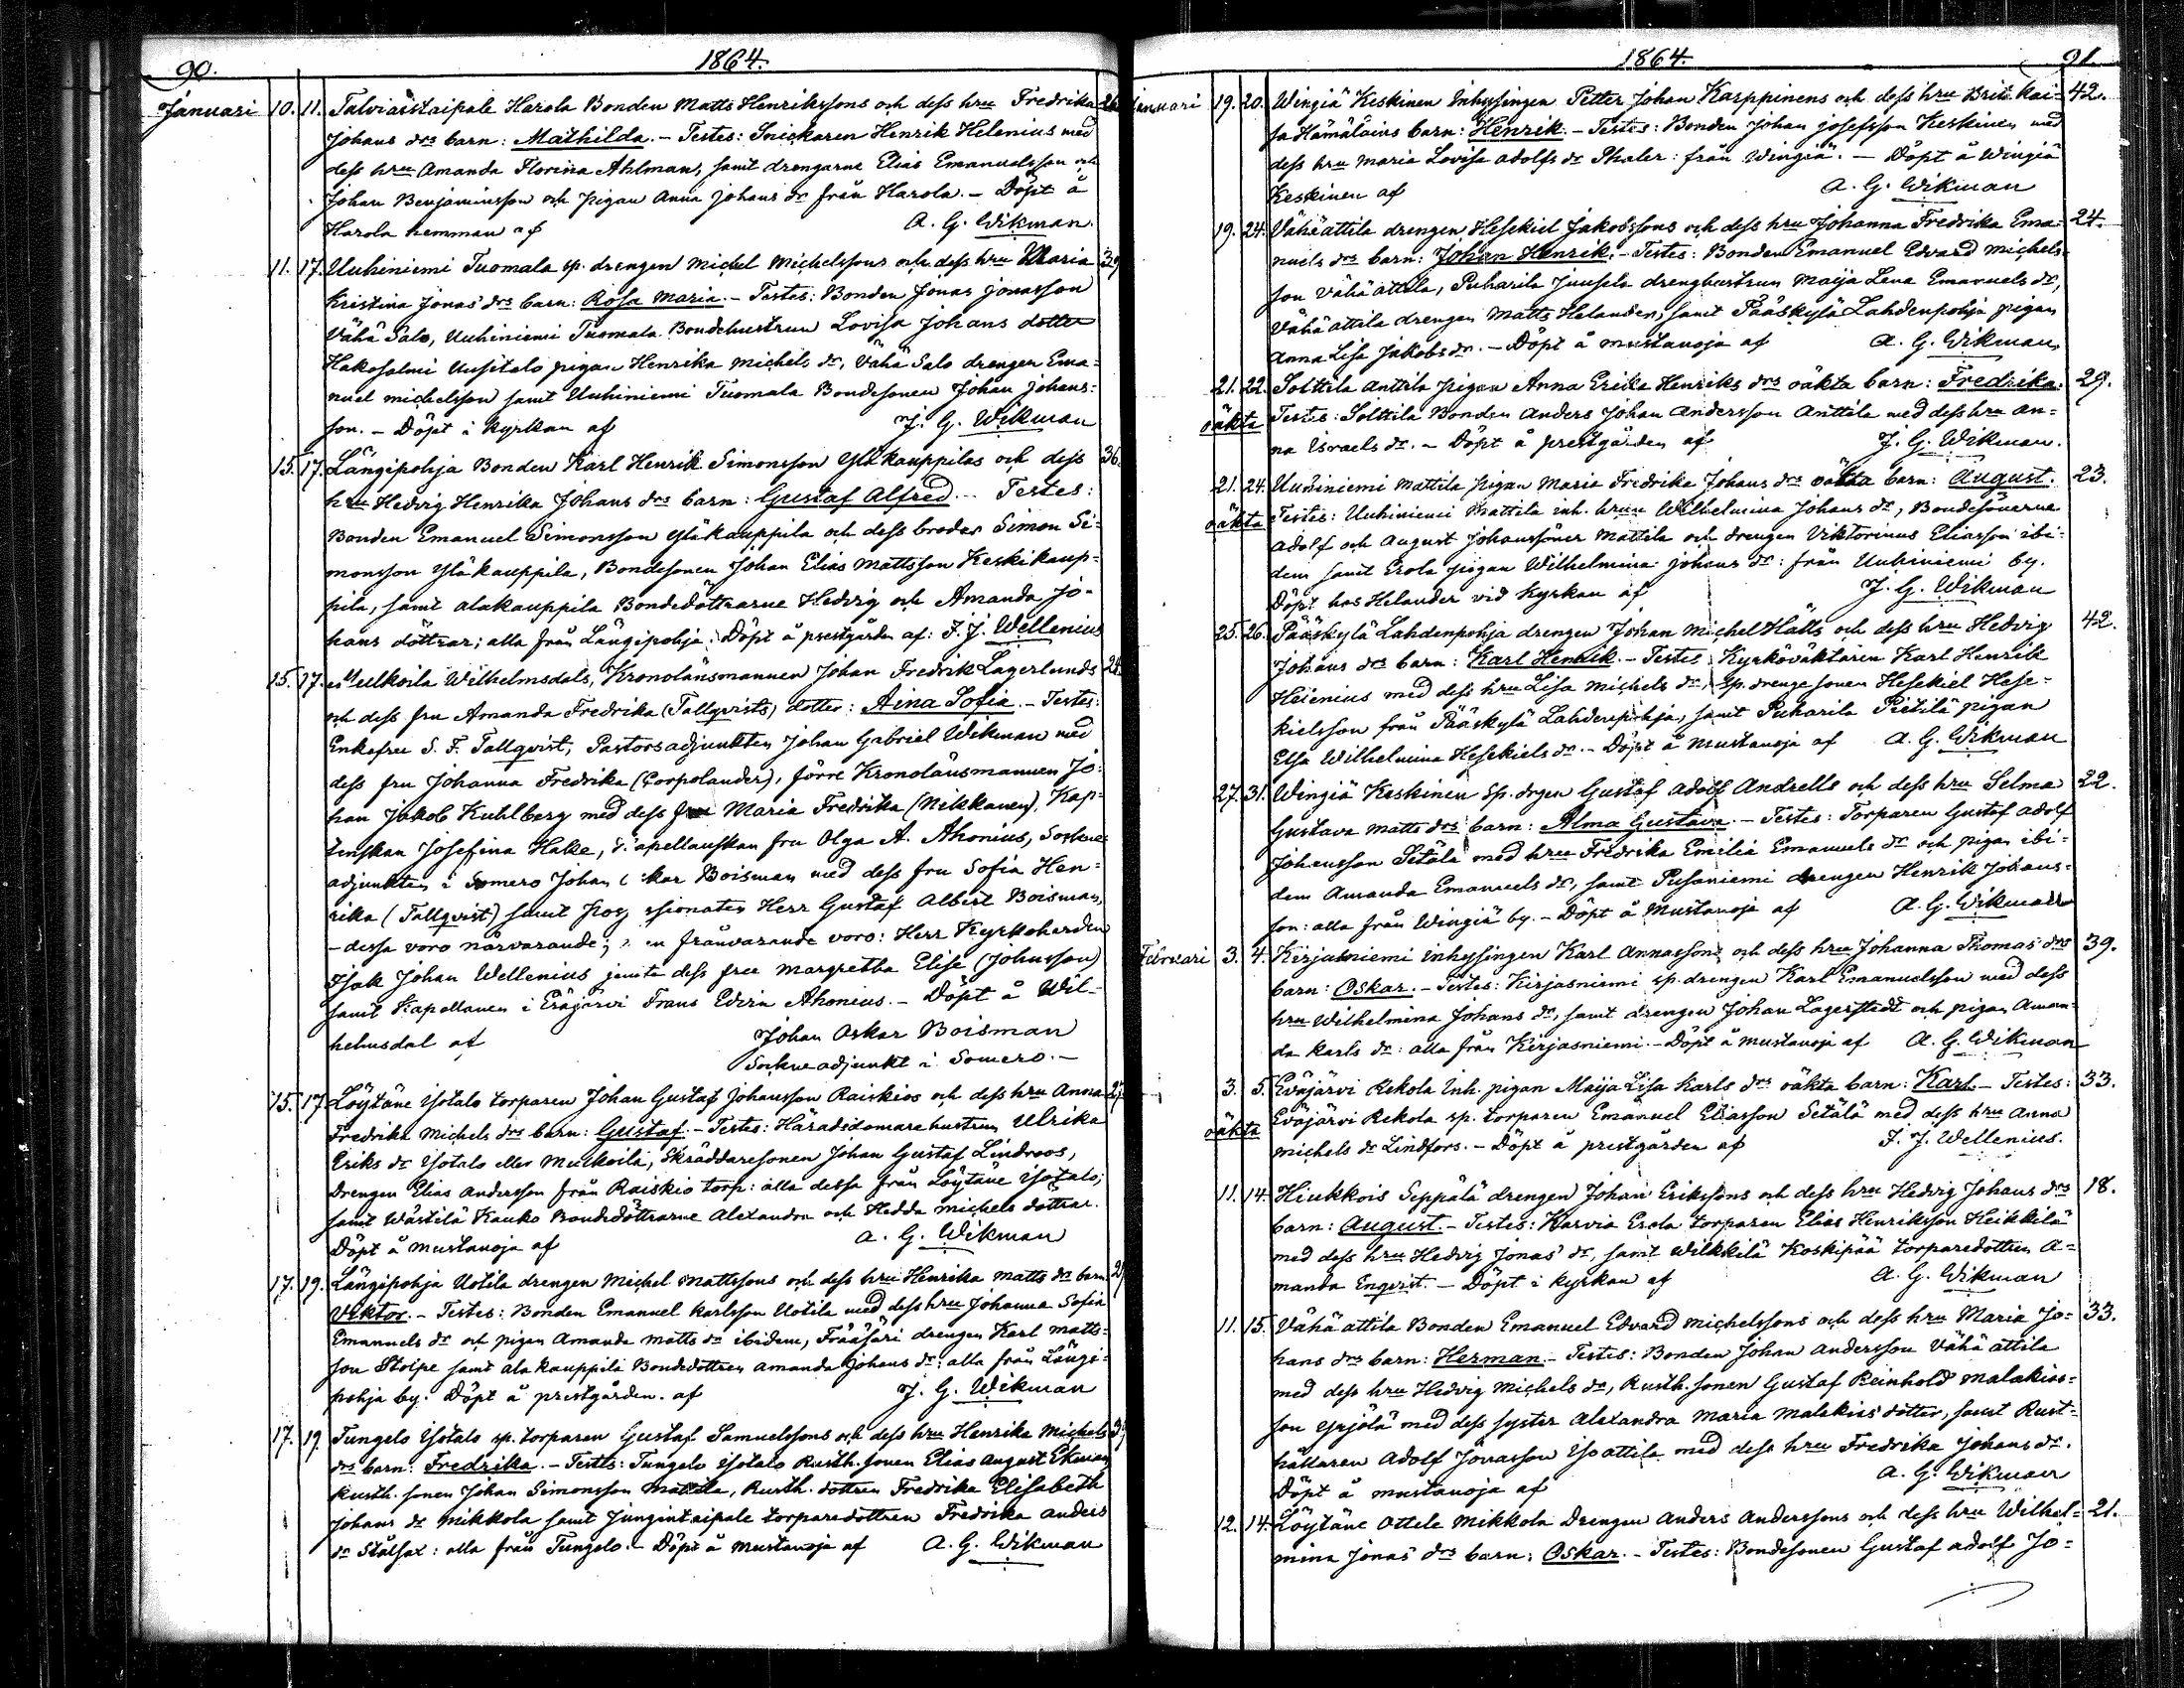 90. 1864.
Januari 10. 11. Talviaistaipale Harola Bonden Matts Henrikssons och dess hru Fredrika 26
Johans drs barn: Mathilda. - Testes: Snickaren Henrik Helenius med
dess hru Amanda Florina Ahlman, samt drengarne Elias Emanuelsson och
Johan Benjaminsson och pigan Anna Johans dr från Harola. - Döpt å
Harola hemman af A. G. Wikman.
11. 17. Uuhiniemi Tuomala sp. drengen Michel Michelssons och dess hru Maria 39
Kristina Jonas drs barn: Rosa Maria. - Testes: Bonden Jonas Jonasson
Vähä Salo, Uuhiniemi Tuomala Bondehustrun Lovisa Johans dotter
Hakosalmi Uusitalo pigan Henrika Michels dr, Vähä Salo drengen Ema=
nuel Michelsson samt Uuhiniemi Tuomala Bondesonen Johan Johans=
son. - Döpt i kyrkan af J. G. Wikman
15. 17. Längipohja Bonden Karl Henrik Simonsson Yläkauppilas och dess 36.
hru Hedvig Henrika Johans drs barn: Gustaf Alfred. - Testes:
Bonden Emanuel Simonsson Yläkauppila och dess broder Simon Si=
monsson Yläkauppila, Bondesonen Johan Elias Mattsson Keskikaup=
pila, samt Alakauppila Bondedöttrarne Hedvig och Amanda Jo=
hans döttrar; alla från Längipohja. Döpt å prestgården af: F. J. Wellenius
15. 17. Mulkoila Wilhelmsdals, Kronolänsmannen Johan Fredrik Lagerlunds 28
och dess fru Amanda Fredrika (Tallqvists) dotter: Aina Sofia. - Testes:
Enkefru S. F. Tallqvist, Pastorsadjunkten Johan Gabriel Wikman med
dess fru Johanna Fredrika (Corpolander), förre Kronolänsmannen Jo=
han Jakob Kuhlberg med dess fru Maria Fredrika (Nikkanen), Kap=
tenskan Josefina Hake, Kapellanskan fru Olga A. Ahonius, Sockne
adjunkten i Somero Johan Oskar Boisman med dess fru Sofia Hen=
rika (Tallqvist) samt Herr Gustaf Albert Boisman,
- dessa voro närvarande; men frånvarande voro: Herr Kyrkoherden
Isak Johan Wellenius jemte dess fru Margretha Elise (Johnsson)
samt Kapellanen i Eräjärvi Frans Edvin Ahonius. - Döpt å Wil-
helmsdal af Johan Oskar Boisman
Sockneadjunkt i Somero. -
15. 17. Löytäne Isotalo torparen Johan Gustaf Johansson Raiskios och dess hru Anna 27
Fredrika Michels drs barn: Gustaf. - Testes: Häradsdomarehustrun Ulrika
Eriks dr Isotalo eller Mulkoila, Skräddaresonen Johan Gustaf Lindroos,
Drengen Elias Andersson från Raiskio torp: alla dessa från Löytäne Isotalo;
samt Wästilä Kauko Bondedöttrarne Alexandra och Hedda Michels döttrar.
Döpt å Mustanoja af A. G. Wikman
17. 19. Längipohja Uotila drengen Michel Mattssons och dess hru Henrika Matts drs barn 21
Viktor. - Testes: Bonden Emanuel Karlsson Uotila med dess hru Johanna Sofia
Emanuels dr och pigan Amanda Matts dr ibidem, drengen Karl Matts=
son Stolpe samt Alakauppila Bondedottren Amanda Johans dr: alla från Längi=
pohja by. Döpt å prestgården. af J. G. Wikman
17. 19. Tungelo Isotalo sp. torparen Gustaf Samuelssons och dess hru Henrika Michels
drs barn: Fredrika. - Testes: Tungelo Isotalo Rusth. sonen Elias August Ekman
Rusth. sonen Johan Simonsson Mattila, Rusth. dottren Fredrika Elisabeth
Johans dr Mikkola samt Jungintaipale torparedottren Fredrika Anders
dr Stålsax: alla från Tungelo. - Döpt å Mustanoja af A. G. Wikman
1864. 91
Januari 19. 20. Wingiä Keskinen Inhysingen Petter Johan Karppinens och dess hru Brit. Kai= 42.
sa Hämäläins barn: Henrik. - Testes: Bonden Johan Josefsson Keskinen med
dess hru Maria Lovisa Adolfs dr Phaler: från Wingiä. - Döpt å Wingiä
Keskinen af A. G. Wikman
19. 24. Vähäattila drengen Hesekiel Jakobssons och dess hru Johanna Fredrika Ema= 24.
nuels drs barn: Johan Henrik. - Testes: Bonden Emanuel Edvard Michels=
son Vähäattila, Puharila Juusela drenghustrun Maija Lena Emanuels dr,
Vähäattila drengen Matts Helander, samt Pääskylä Lahdenpohja pigan
Anna Lisa Jakobs dr. - Döpt å Mustanoja af A. G. Wikman,
21. 22. Solttila Anttila pigan Anna Erika Henriks drs oäkta barn: Fredrika. 29.
oäkta Testes: Solttila Bonden Anders Johan Andersson Anttila med dess hru An=
na Israels dr. - Döpt å prestgården af J. G. Wikman.
21. 24. Uuhiniemi Mattila pigan Maria Fredrika Johans drs oäkta barn: August. 23.
oäkta Testes: Uuhiniemi Mattila inh. hrun Wilhelmina Johans dr, Bondesönerne
Adolf och August Johanssöner Mattila och drengen Viktorinus Eliasson ibi=
dem samt Erola pigan Wilhelmina Johans dr: från Uuhiniemi by.
Döpt hos Helander vid Kyrkan af J. G. Wikman
25. 26. Pääskylä Lahdenpohja drengen Johan Michel Hätts och dess hru Hedvig 42.
Johans drs barn: Karl Henrik. - Testes: Kyrkoväktaren Karl Henrik
Heinius med dess hru Lisa Michels dr, sp. drengesonen Hesekiel Hese=
kielsson från Pääskylä Lahdenpohja, samt Puharila Pietilä pigan
Elsa Wilhelmina Hesekiels dr. - Döpt å Mustanoja af A. G. Wikman
27. 31. Wingiä Keskinen sp. drgen Gustaf Adolf Andrells och dess hru Selma 22.
Gustava Matts drs barn: Alma Gustava. - Testes: Torparen Gustaf Adolf
Johansson Setälä med hru Fredrika Emilia Emanuels dr och pigan ibi=
dem Amanda Emanuels dr, samt Pusaniemi drengen Henrik Johans=
son: alla från Wingiä by. - Döpt å Mustanoja af A. G. Wikman
Februari 3. 4. Kirjasniemi inhysingen Karl Annassons och dess hru Johanna Thomas drs 39.
barn: Oskar. - Testes: Kirjasniemi sp. drengen Karl Emanuelsson med dess
hru Wilhelmina Johans dr, samt drengen Johan Lagerstedt och pigan Aman=
da Karls dr: alla från Kirjasniemi. - Döpt å Mustanoja af A. G. Wikman
3. 5. Eväjärvi Rekola Inh. pigan Maija Lisa Karls drs oäkta barn: Karl - Testes: 33.
oäkta Eväjärvi Rekola sp. torparen Emanuel Eliasson Setälä med dess hru Anna
Michels dr Lindfors. - Döpt å prestgården af F. J. Wellenius.
11. 14. Hiukkois Seppälä drengen Johan Erikssons och dess hru Hedvig Johans drs 18.
barn: August. - Testes: Karvia Erola torparen Elias Henriksson Heikkilä
med dess hru Hedvig Jonas dr, samt Wilkkilä Koskipää torparedottren A=
manda Enqvist. - Döpt i kyrkan af A. G. Wikman
11. 15. Vähäattila Bonden Emanuel Edvard Michelssons och dess hru Maria Jo= 33.
hans drs barn: Herman. - Testes: Bonden Johan Andersson Vähäattila
med dess hru Hedvig Michels dr, Rusth. sonen Gustaf Reinhold Malakias=
son Yrjölä med dess syster Alexandra Maria Malakias dotter, samt Rust=
hållaren Adolf Jonasson Isoattila med dess hru Fredrika Johans dr.
Döpt å Mustanoja af A. G. Wikman
12. 14. Löytäne Ottela Mikkola Drengen Anders Anderssons och dess hru Wilhel= 21.
mina Jonas drs barn: Oskar. - Testes: Bondesonen Gustaf Adolf Jo=